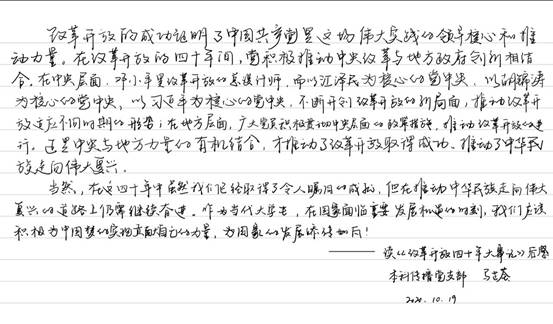 改革开放的成功证明了中国共产党是这场伟大实践的领导核心和推
动力量。在改革开放的四十年间，党积极推动中央改革与地方政府创新相结
合。在中央层面，邓小平是改革开放的总设计师，而以江泽民为核心的党中央，以胡锦涛
为核心的党中央，以习近平为核心的党中央，不断开创改革开放的新局面，推动改革开
放适应不同时期的形势；在地方层面，广大党员积极贯彻中央层面的改革措施，推动改革开放的进
行。这是中央与地方力量的有机结合，才推动了改革开放取得成功、推动了中华民
族走向伟大复兴。
当然，在这四十年中虽然我们已经取得了令人瞩目的成就，但在推动中华民族走向伟大
复兴的道路上仍需继续奋进。作为当代大学生，在国家面临重要发展机遇的时刻，我们应该
积极为中国梦的实现贡献自己的力量，为国家的发展添砖加瓦！
——读《改革开放四十年大事记》后感
本科传播党支部
2020.10.19